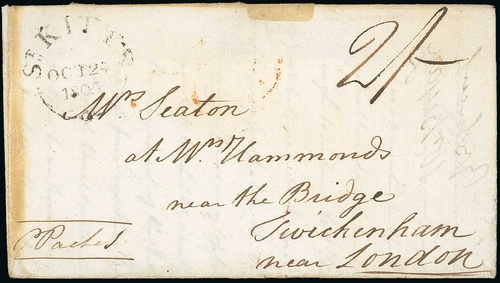 ST KITTS
OCT 24
2/-
Mrs Seaton
at Mrs Hammonds
near the Bridge
Twickenham
near London